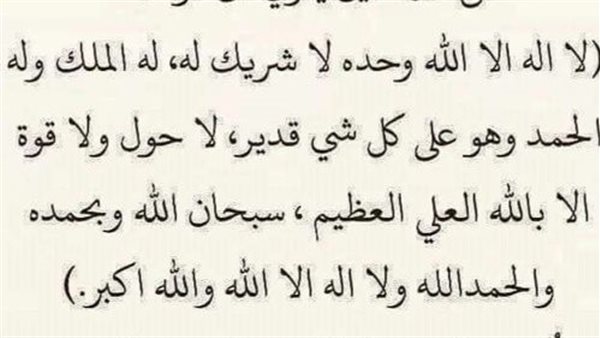 (لا اله الا الله وحده لا شريك له، له الملك وله
الحمد وهو على كل شي قدير، لا حول ولا قوة
الا بالله العلي العظيم ، سبحان الله وبحمده
والحمدالله ولا اله الا الله والله اكبر.)